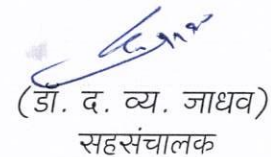 (डॉ. द. व्य. जाधव)
सहसंचालक